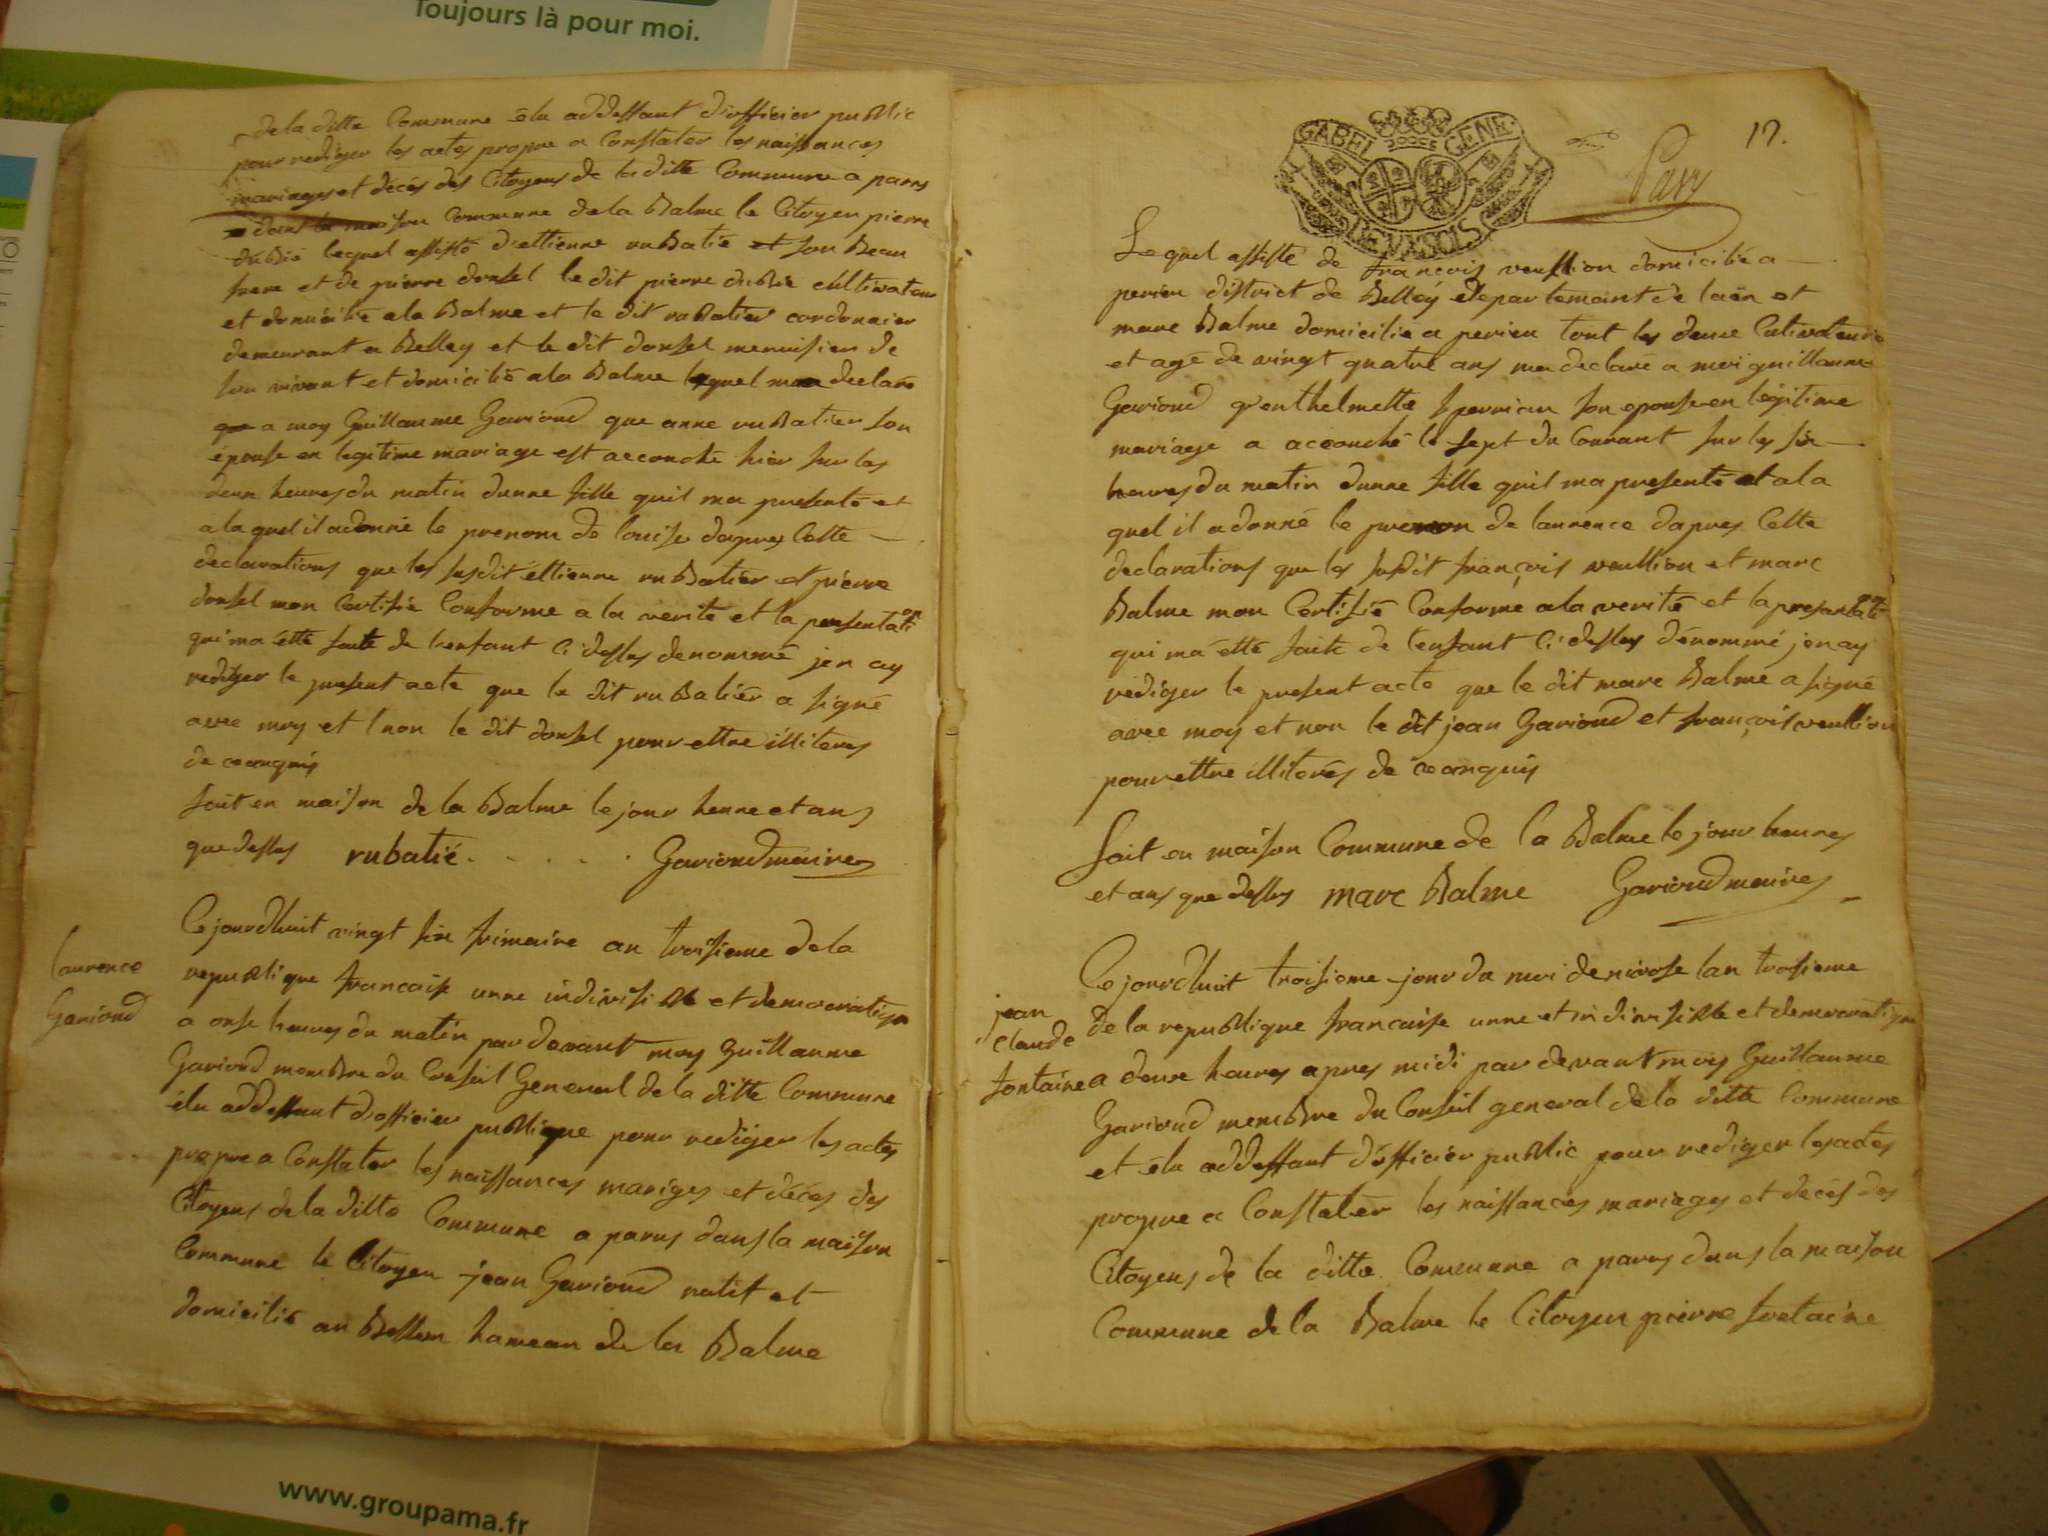 Toujours là pour moi.
de la ditte Commune élu addessant d'officier public
pour rediger les actes propre a Constater les naissances
mariages et décés des Citoyens de la ditte Commune a parus
dans la maison Commune de la Balme le Citoyen pierre
dubié lequel assisté d'ettienne rubatié et son Beau
frere et de pierre donsel le dit pierre dubié cultivateur
et domicilié a la Balme et le dit rubatier cordonnier
demeurant a Belley et le dit donsel menuisier de
son vivant et domicilié a la Balme lequel ma declaré
a moy Guillaume Garioud que anne rubatier son
épouse en legitime mariage est accouché hier sur les
deux heures du matin dunne fille quil ma presenté et
a la quel il a donné le prenom de louise dapres Cette
declarations que les susdit éttienne rubatier et pierre
donsel mon Certifié Conforme a la verite et la presentation
qui ma étté faite de l'enfant Ci dessus denommé jen ay
rediger le present acte que le dit rubatier a signé
avec moy et non le dit donsel pour ettre illiteres
de ce anquis
fait en maison de la Balme le jour heure et ans
que dessus rubatié. Garioud maire
laurence
Garioud
Cejourdhuit vingt six frimaire an troisieme de la
republique francaise unne indivisible et democratique
a onse heures du matin par devant moy Guillaume
Gariond membre du Conseil General de la ditte Commune
élu addessant d'officier publique pour rediger les actes
propre a Constater les naissances mariges et décés des
Citoyens de la ditte Commune a parus dans la maison
Commune le Citoyen jean Garioud natif et
domicilié au hameau de la Balme
www.groupama.fr
17.
GABEL GENE
Pary
Lequel assisté de françois domicilié a
perieu district de Belley departemaint de laïn et
marc Balme domicilié a perieu tout les deux Cultivateurs
et agé de vingt quatre ans ma declaré a moi guillaume
Gavioud son epouse en légitime
mariage a accouché le sept du Courant sur les six
heures du matin dunne fille quil ma presenté et a la
quel il a donné le prenom de laurence dapres Cette
declarations que les susdit françois et marc
Balme mon Certifié Conforme a la verité et la presentation
qui ma étté faite de l'enfant Ci dessus dénommé jen ay
rédiger le present acte que le dit marc Balme a signé
avec moy et non le dit jean Garioud et françois
pour ettre illiterés de ce anquis
fait en maison Commune de la Balme le jour heures
et ans que dessus marc Balme Garioud maire
jean
claude
fontaine
Cejourdhuit troisieme jour du moi de nivose lan troisieme
de la republique francaise unne et indivisible et democratique
a deux heures apres midi par devant moy Guillaume
Garioud membre du Conseil general de la ditte Commune
et élu addessant d'officier public pour rediger les actes
propre a Constater les naissances mariages et décés des
Citoyens de la ditte Commune a parus dans la maison
Commune de la Balme le Citoyen pierre fontaine